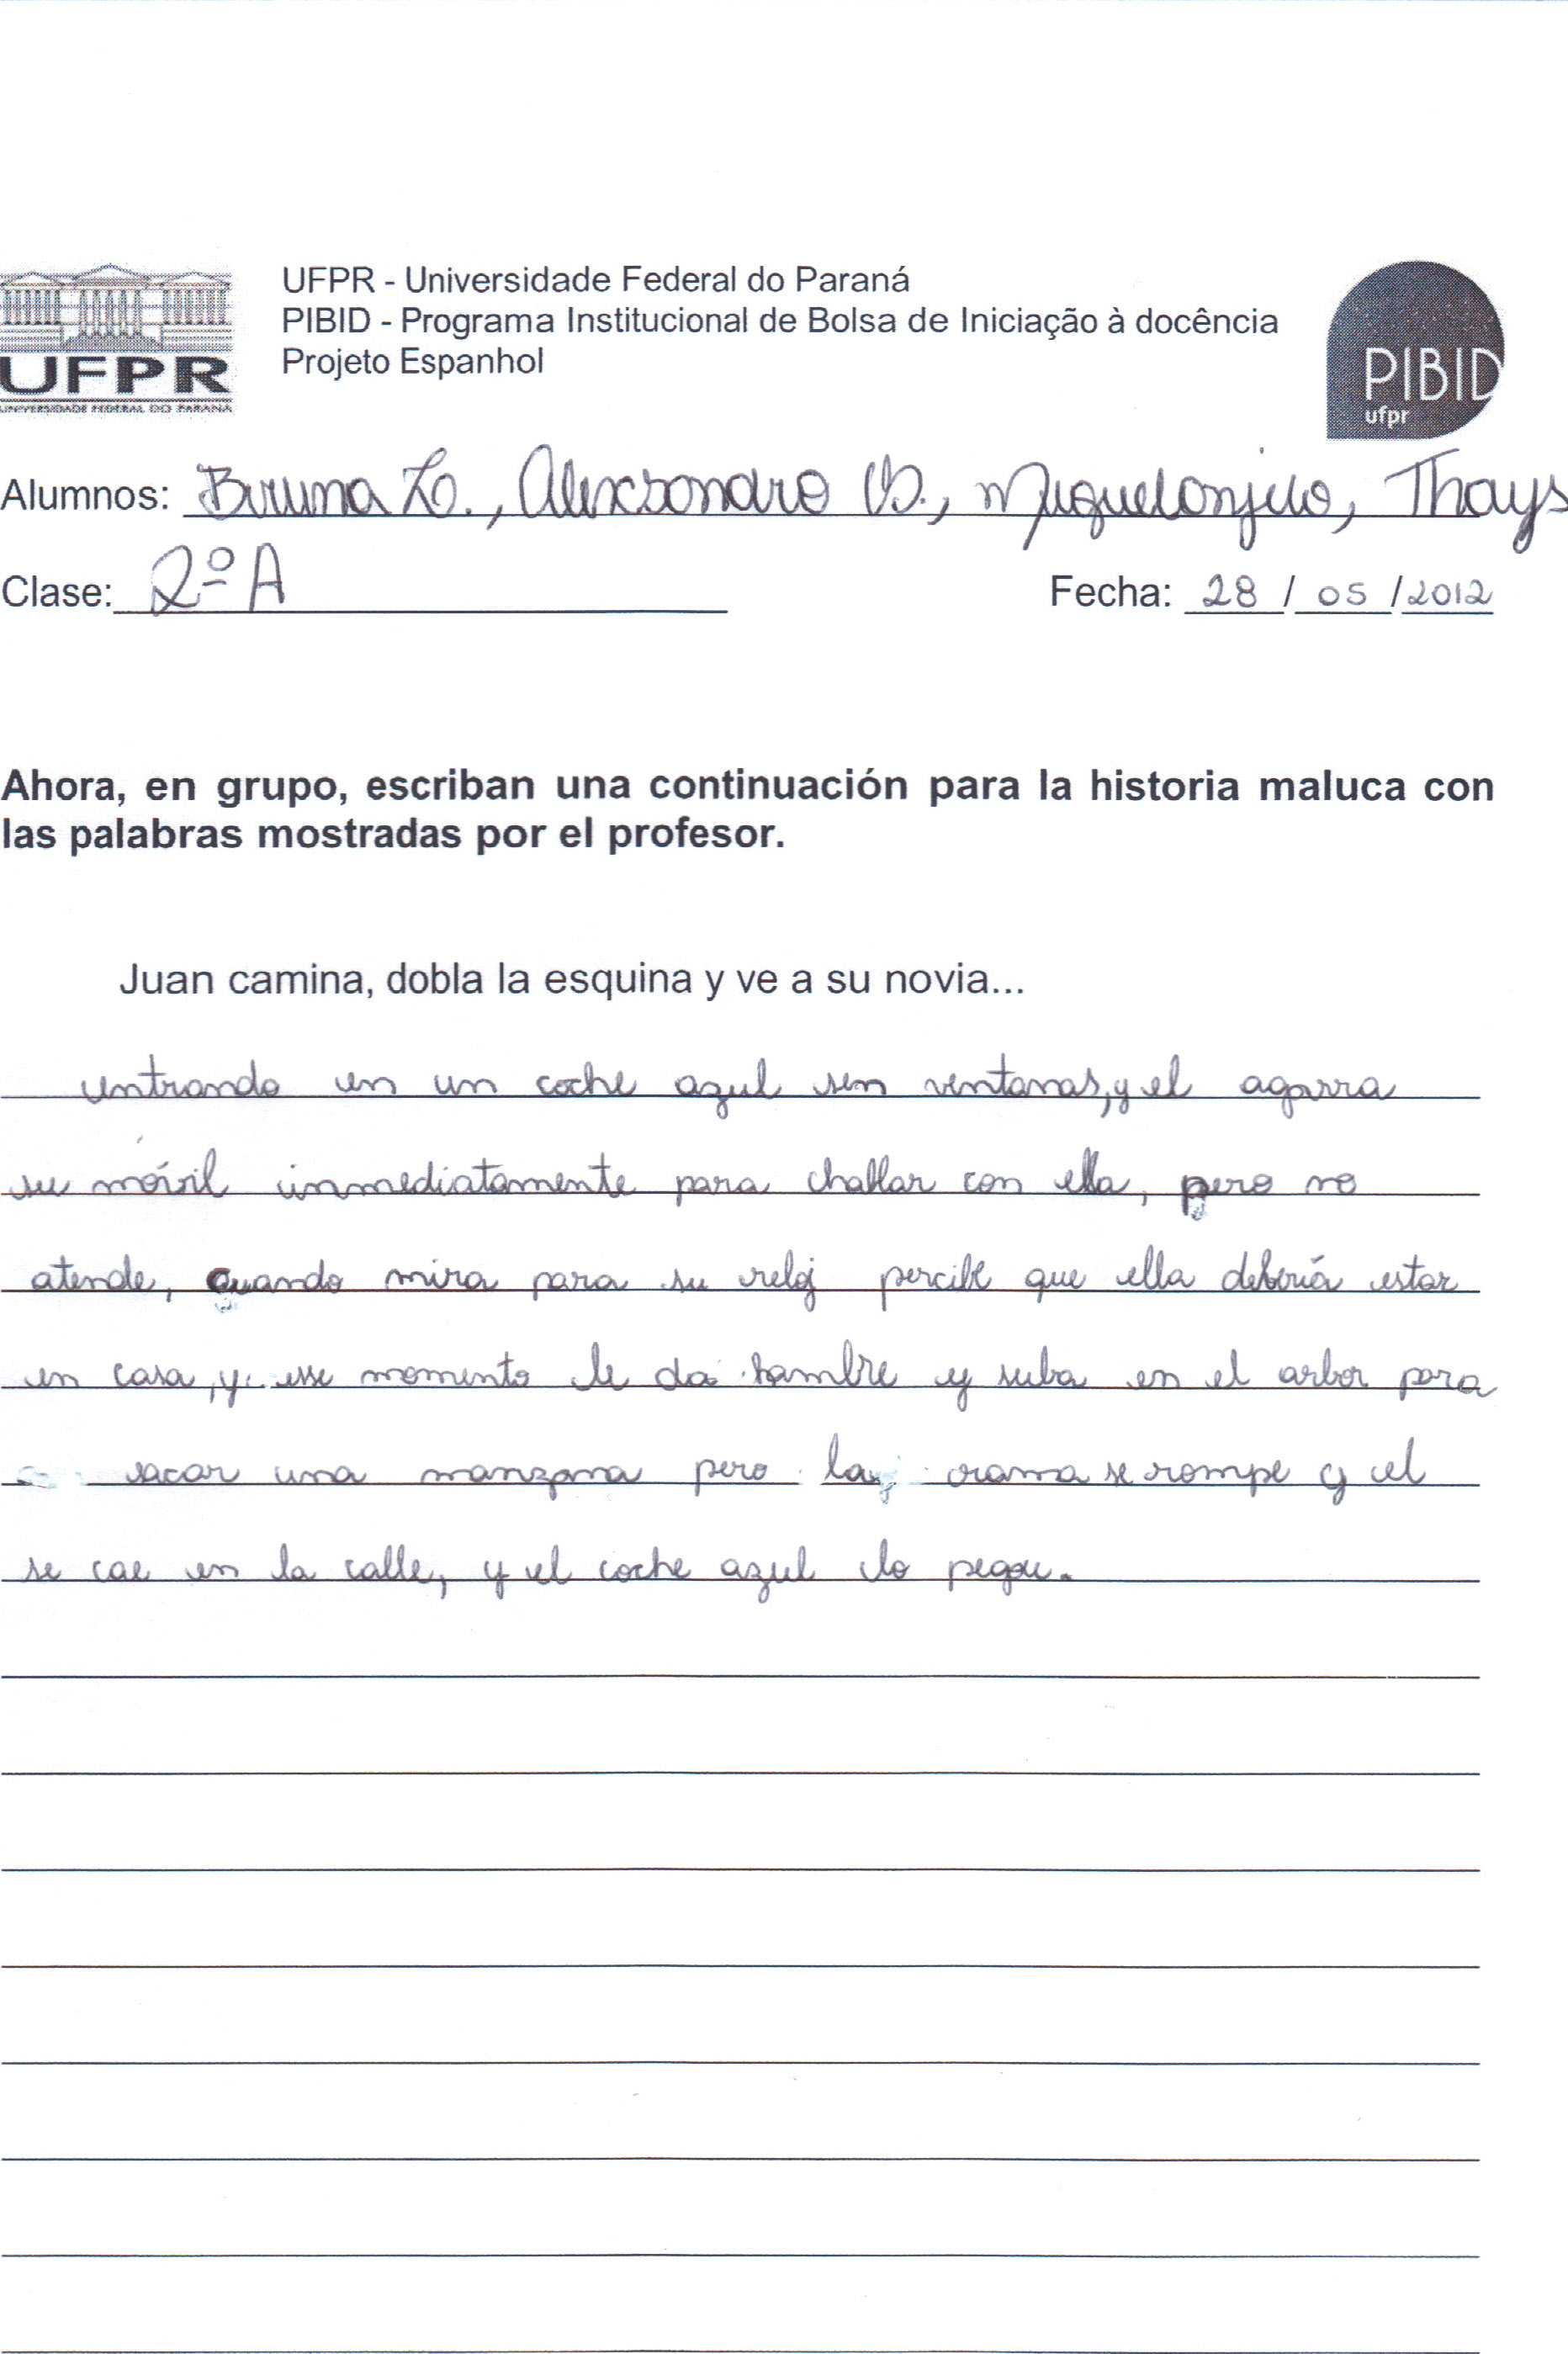 UFPR - Universidade Federal do Paraná
PIBID - Programa Institucional de Bolsa de Iniciação à docência
Projeto Espanhol
UFPR
UNIVERSIDADE FEDERAL DO PARANÁ
PIBID
ufpr
Alumnos: Bruna Z., Alexsandro B., Miguelangelo, Thays
Clase: 2º A Fecha: 28 / 05 / 2012
Ahora, en grupo, escriban una continuación para la historia maluca con
las palabras mostradas por el profesor.
Juan camina, dobla la esquina y ve a su novia...
entrando en un coche azul sen ventanas, y el agarra
su móvil inmediatamente para chablar con ella, pero no
atende, cuando mira para su reloj percibe que ella debería estar
en casa, y esse momento le da hambre y suba en el arbor para
sacar una manzana pero la rama se rompe y el
se cae en la calle, y el coche azul lo pegou.